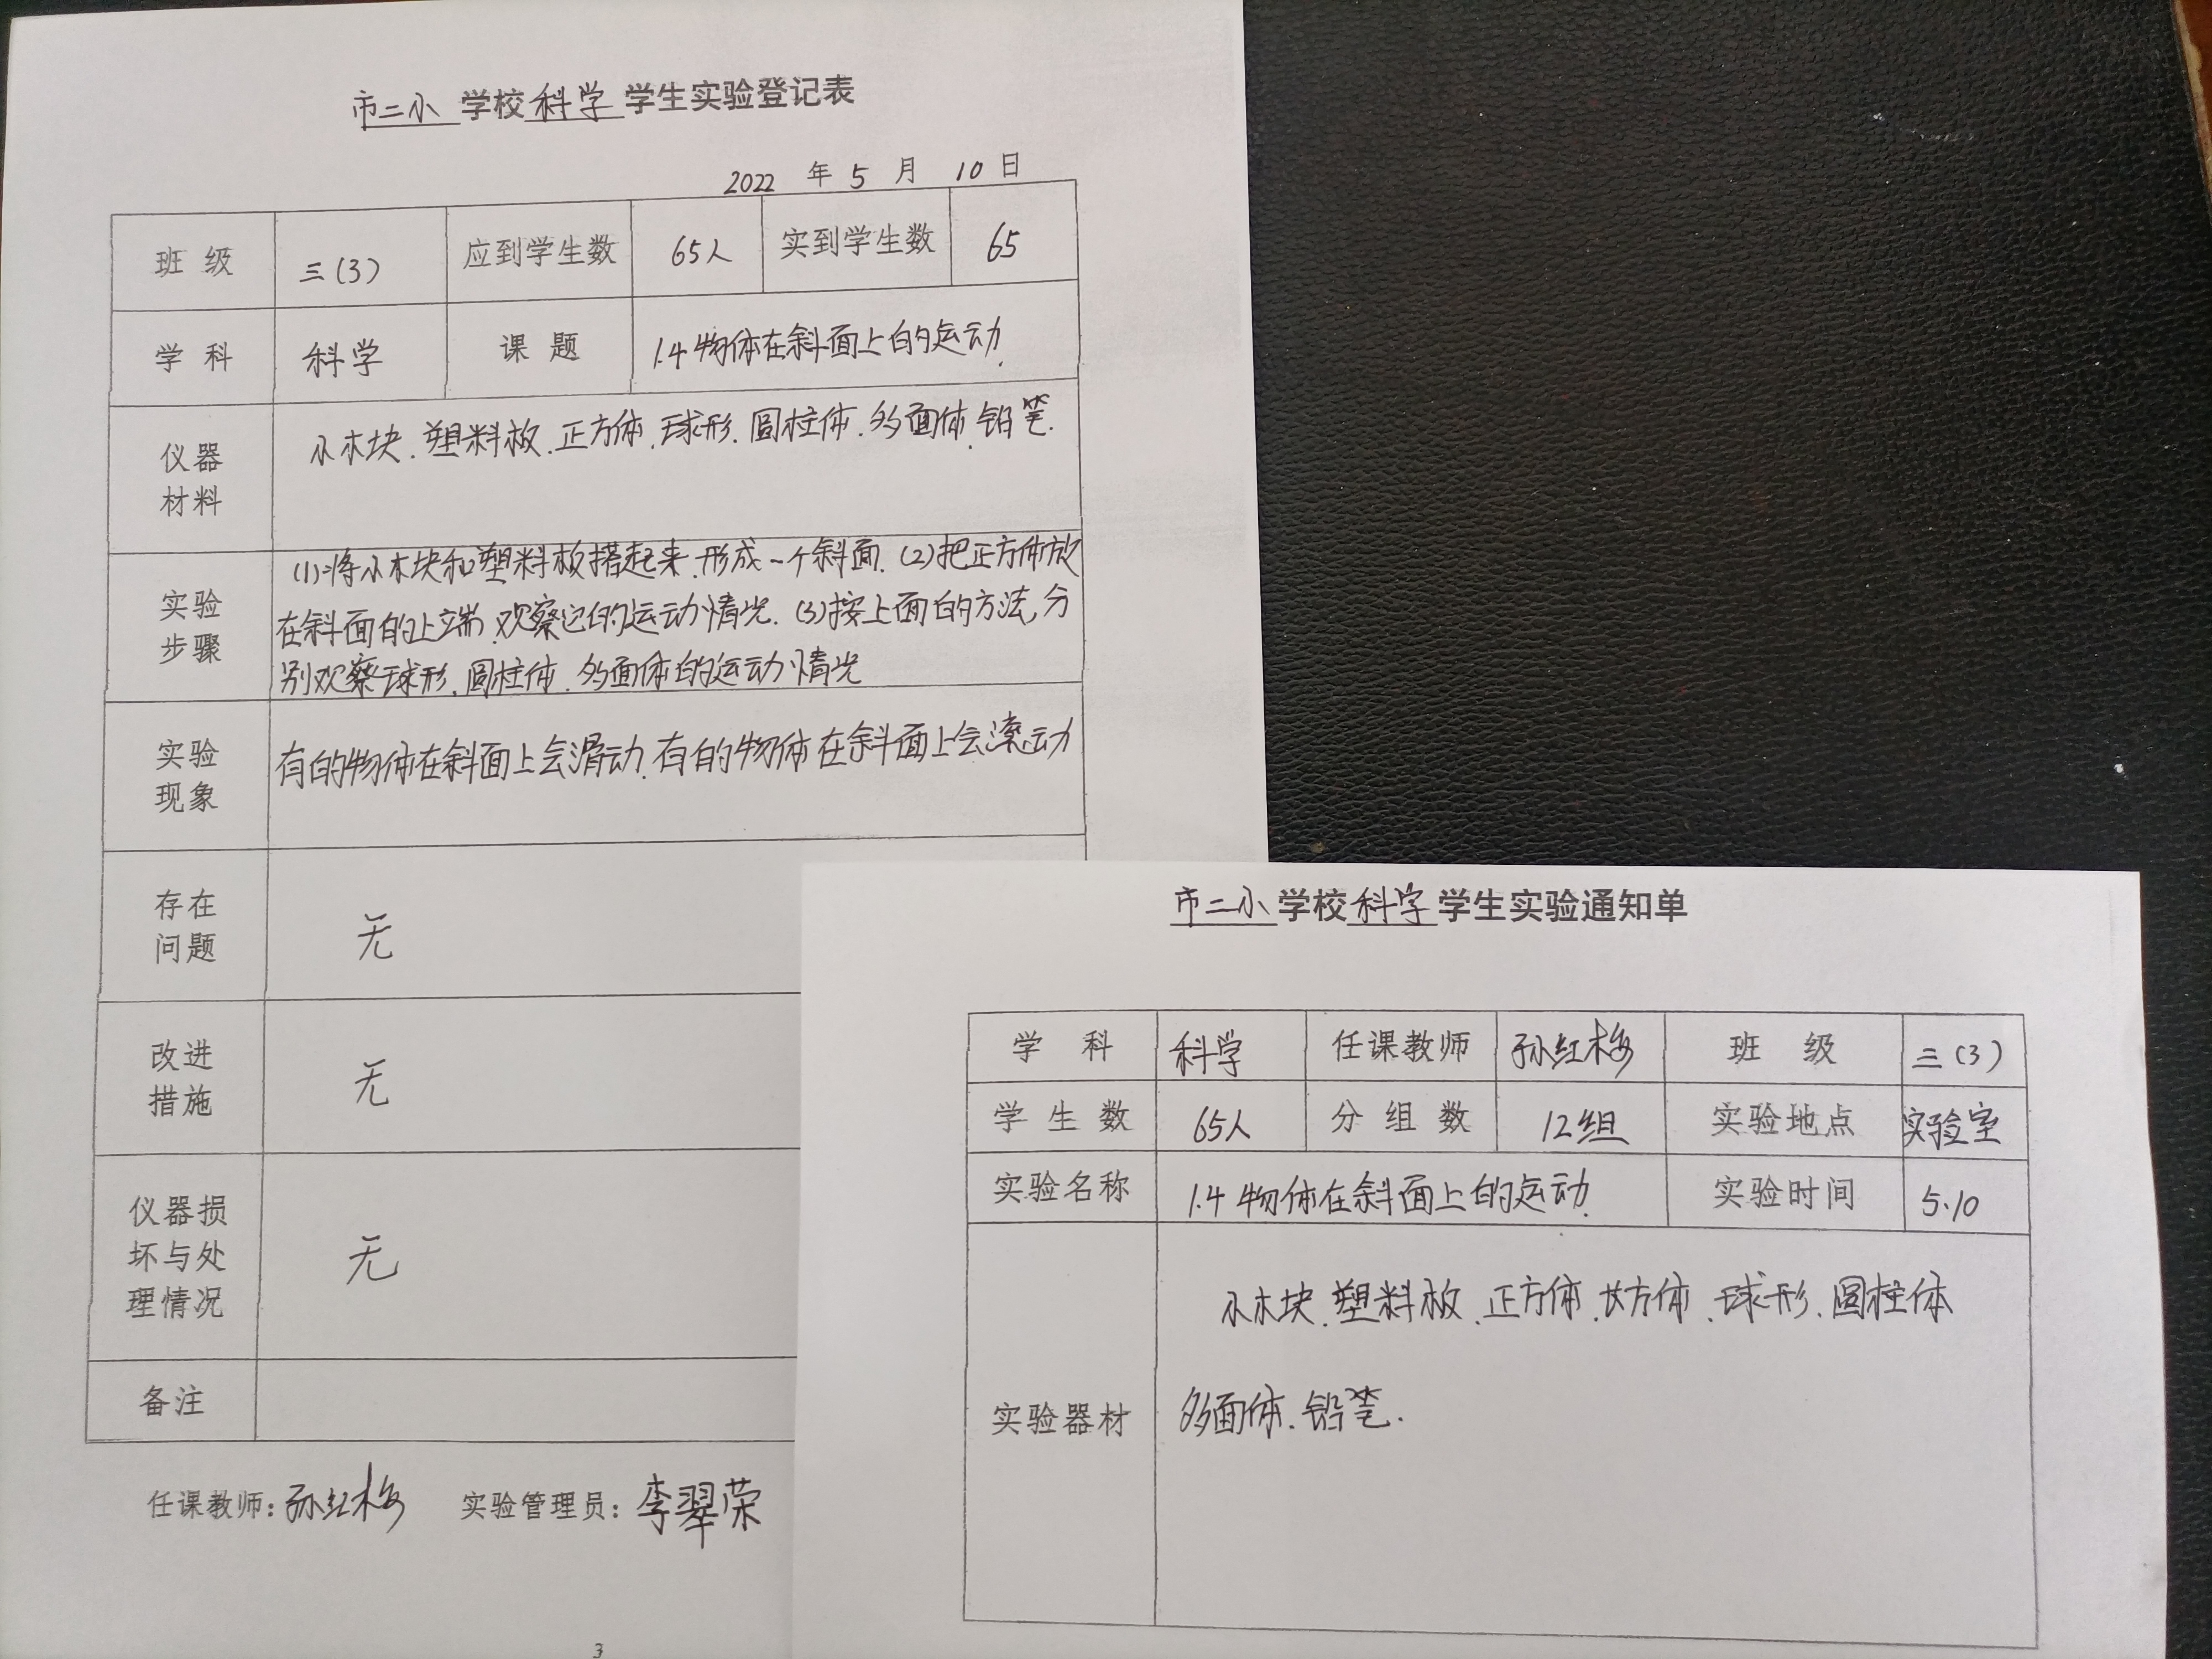 市二小 学校 科学 学生实验登记表
2022 年 5 月 10 日
班 级 三(3) 应到学生数 65人 实到学生数 65
学 科 科学 课 题 1.4 物体在斜面上的运动.
仪器
材料
小木块.塑料板.正方体.球形.圆柱体.多面体.铅笔.
实验
步骤
(1)将小木块和塑料板搭起来.形成一个斜面.(2)把正方体放
在斜面的上端.观察它的运动情况.(3)按上面的方法,分
别观察球形.圆柱体.多面体的运动情况
实验
现象
有的物体在斜面上会滑动.有的物体在斜面上会滚动
存在
问题
无
改进
措施
无
仪器损
坏与处
理情况
无
备注
任课教师:孙红梅 实验管理员:李翠荣
3
市二小 学校 科学 学生实验通知单
学 科 科学 任课教师 孙红梅 班 级 三(3)
学 生 数 65人 分 组 数 12组 实验地点 实验室
实验名称 1.4 物体在斜面上的运动. 实验时间 5.10
实验器材
小木块.塑料板.正方体.长方体.球形.圆柱体
多面体.铅笔.